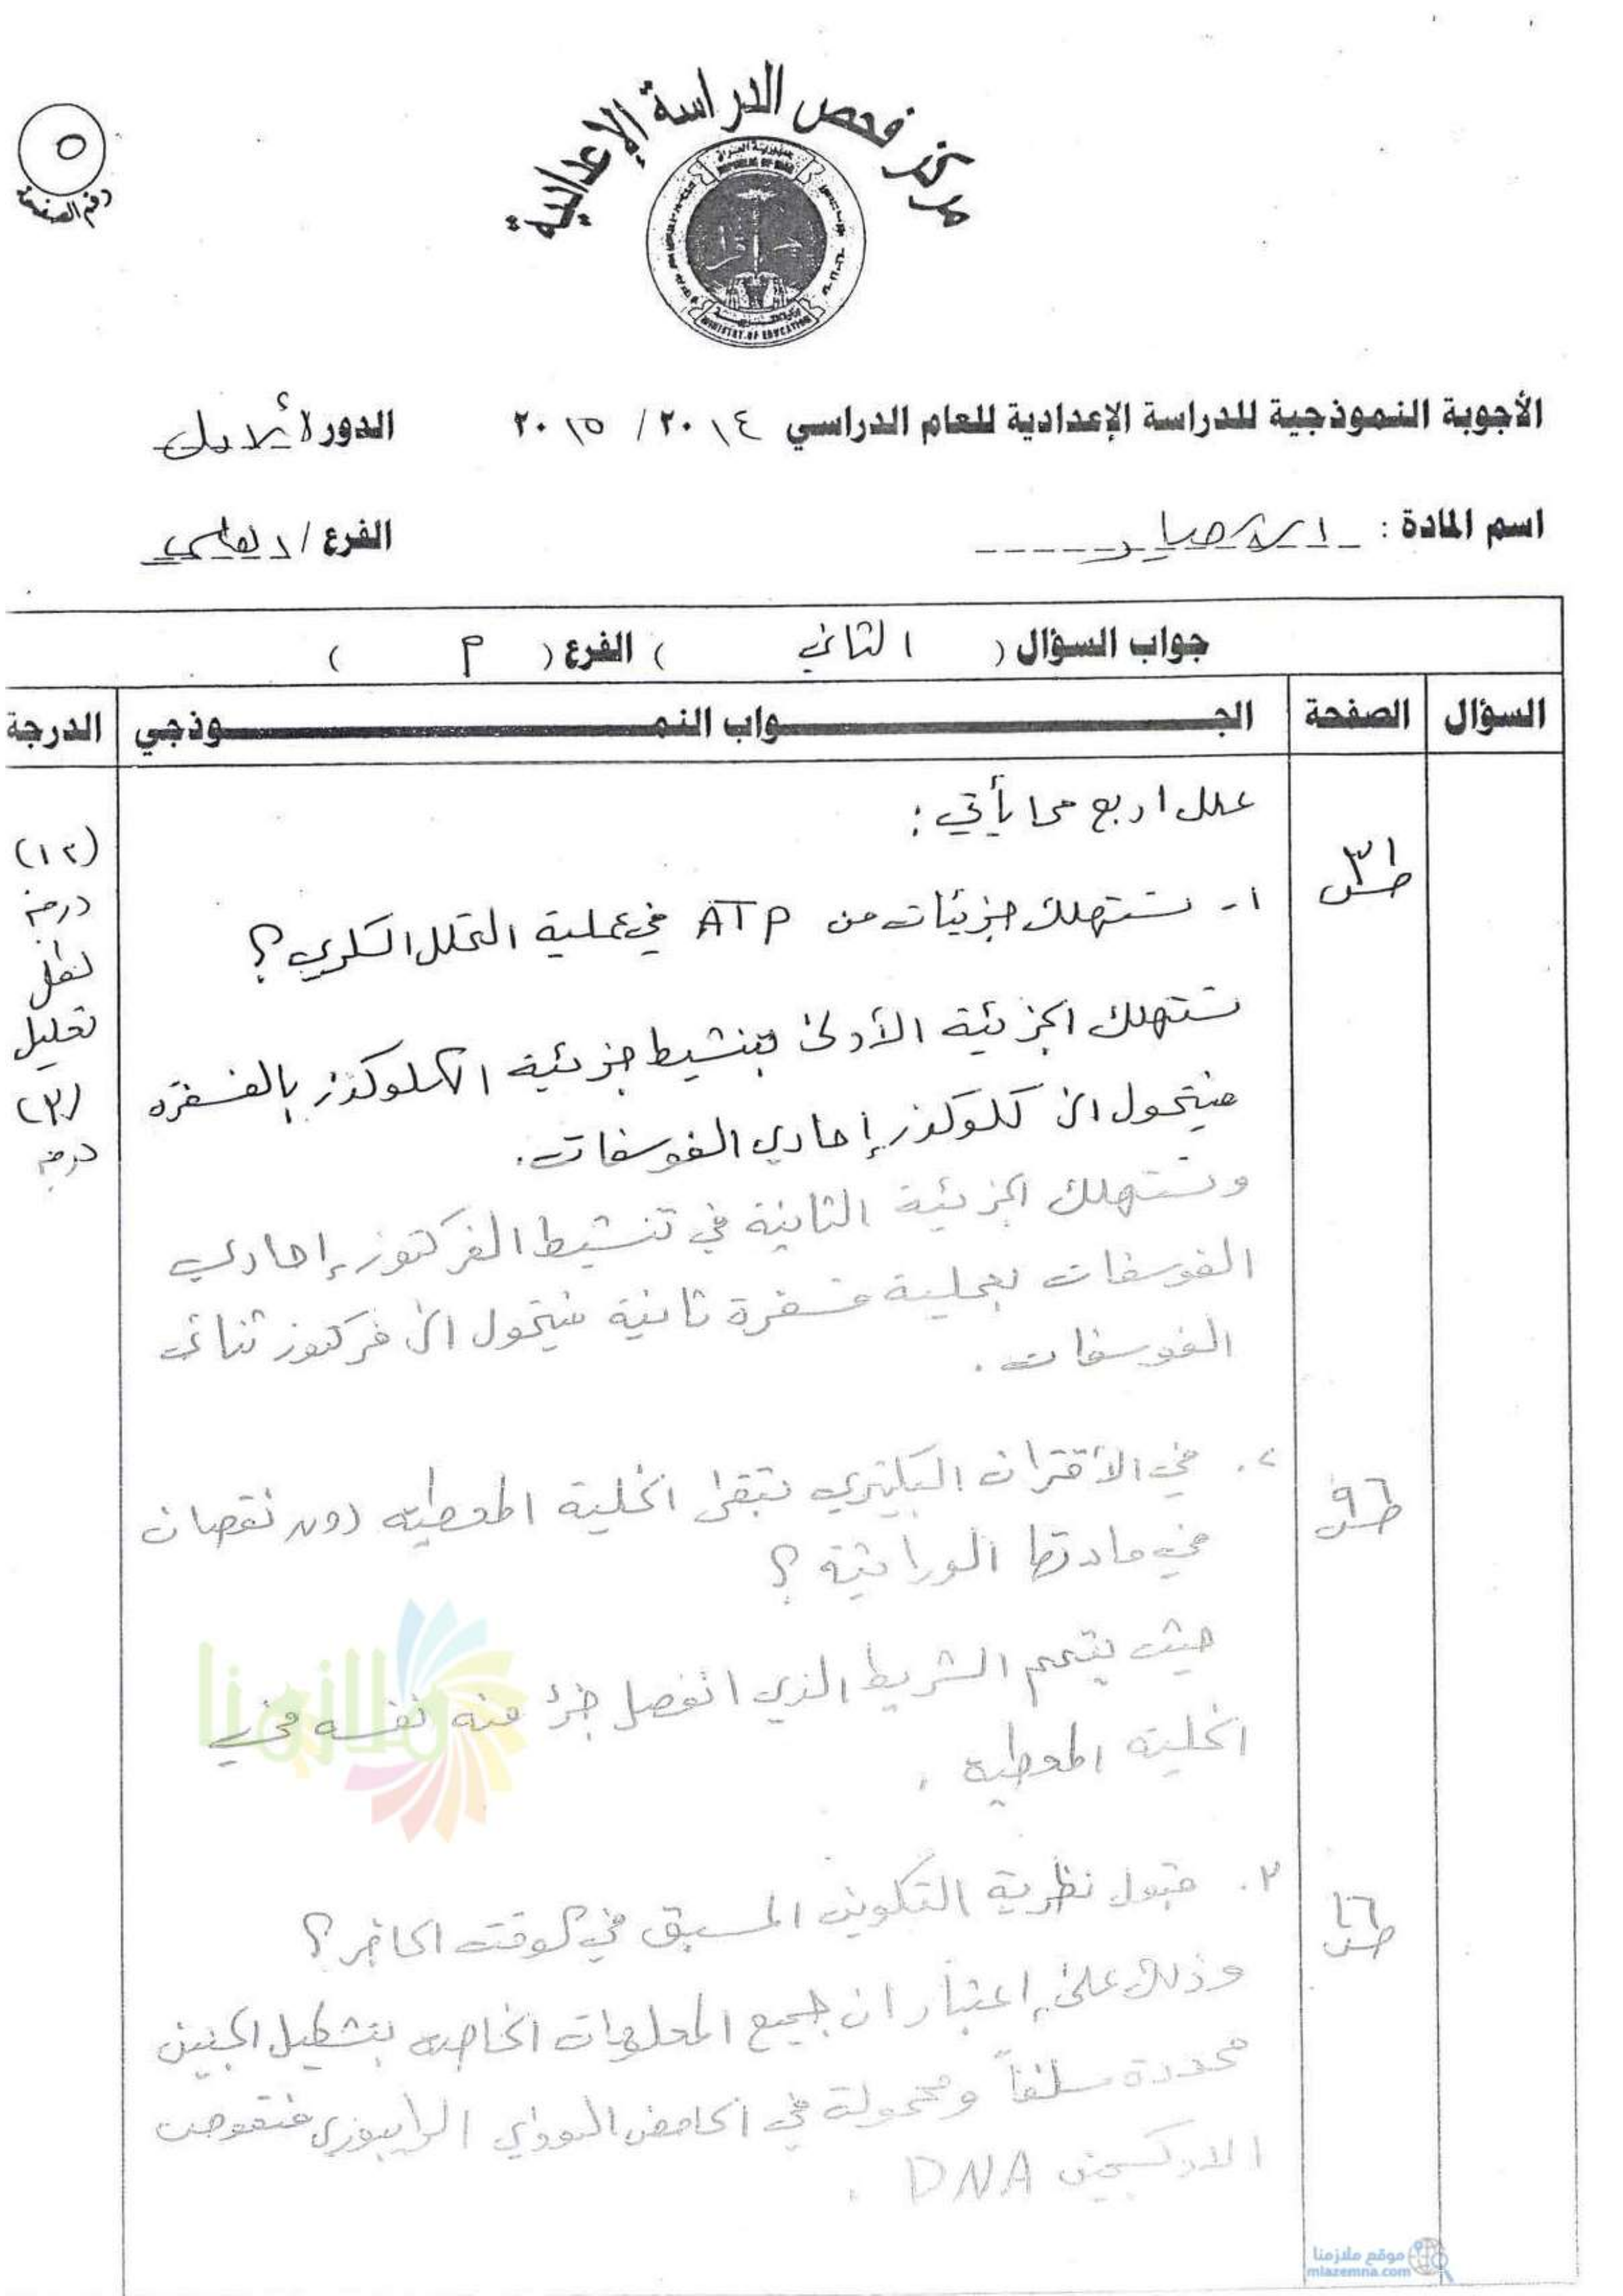 مركز فحص الدراسة الإعدادية
جمهورية العراق
REPUBLIC OF IRAQ
MINISTRY OF EDUCATION
٥
رقم الصفحة
الأجوبة النموذجية للدراسة الإعدادية للعام الدراسي ٢٠١٤ / ٢٠١٥ الدور الأول
اسم المادة : الاحياء الفرع / العلمي
جواب السؤال ( الثاني ) الفرع ( م )
السؤال الصفحة الجـــواب النمـــوذجي الدرجة
علل اربع مما يأتي :
(١٢) درجة لكل تعليل (٣) درجة
ص٣١
١- تستهلك جزيئات من ATP في عملية التحلل السكري ؟
تستهلك الجزيئة الأولى بتنشيط جزيئة الكلوكوز بالفسفرة
فيتحول الى كلوكوز إحادي الفوسفات .
وتستهلك الجزيئة الثانية في تنشيط الفركتوز إحادي
الفوسفات بعملية فسفرة ثانية فيتحول الى فركتوز ثنائي
الفوسفات .
ص٩٦
٢. في الأقتران البكتيري تبقى الخلية المعطية دون نقصان
في مادتها الوراثية ؟
حيث يتمم الشريط الذي انفصل جزء منه نفسه في
الخلية المعطية .
٣. قبول نظرية التكوين المسبق في الوقت الحاضر ؟
وذلك على إعتبار ان جميع المعلومات الخاصة بتشكيل الجنين
محددة سلفاً ومحمولة في الحامض النووي الرايبوزي منقوص
الاوكسجين DNA .
ملازمنا
موقع ملازمنا
mlazemna.com